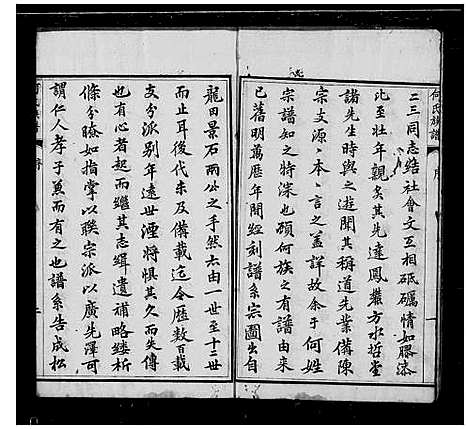 何氏族譜
序
二三同志結社會文互相砥礪情如膠漆
比至壯年親炙其先達鳳巖方水哲堂
諸先生時與之遊聞其稱道先業備陳
宗支源源本本言之葢詳故余于何姓
宗譜知之特深也顧何族之有譜由來
已舊明萬歷年間經刻譜系宗圖出自
龍田景石兩公之手然六由一世至十三世
而止耳後代未及備載迄今歷數百載
支分派別年遠世湮將惧其久而失傳
也有心者起而繼其志緝遺補略縷析
條分瞭如指掌以聯宗派以廣先澤可
謂仁人孝子蒸而有之也譜系告成松
序
二